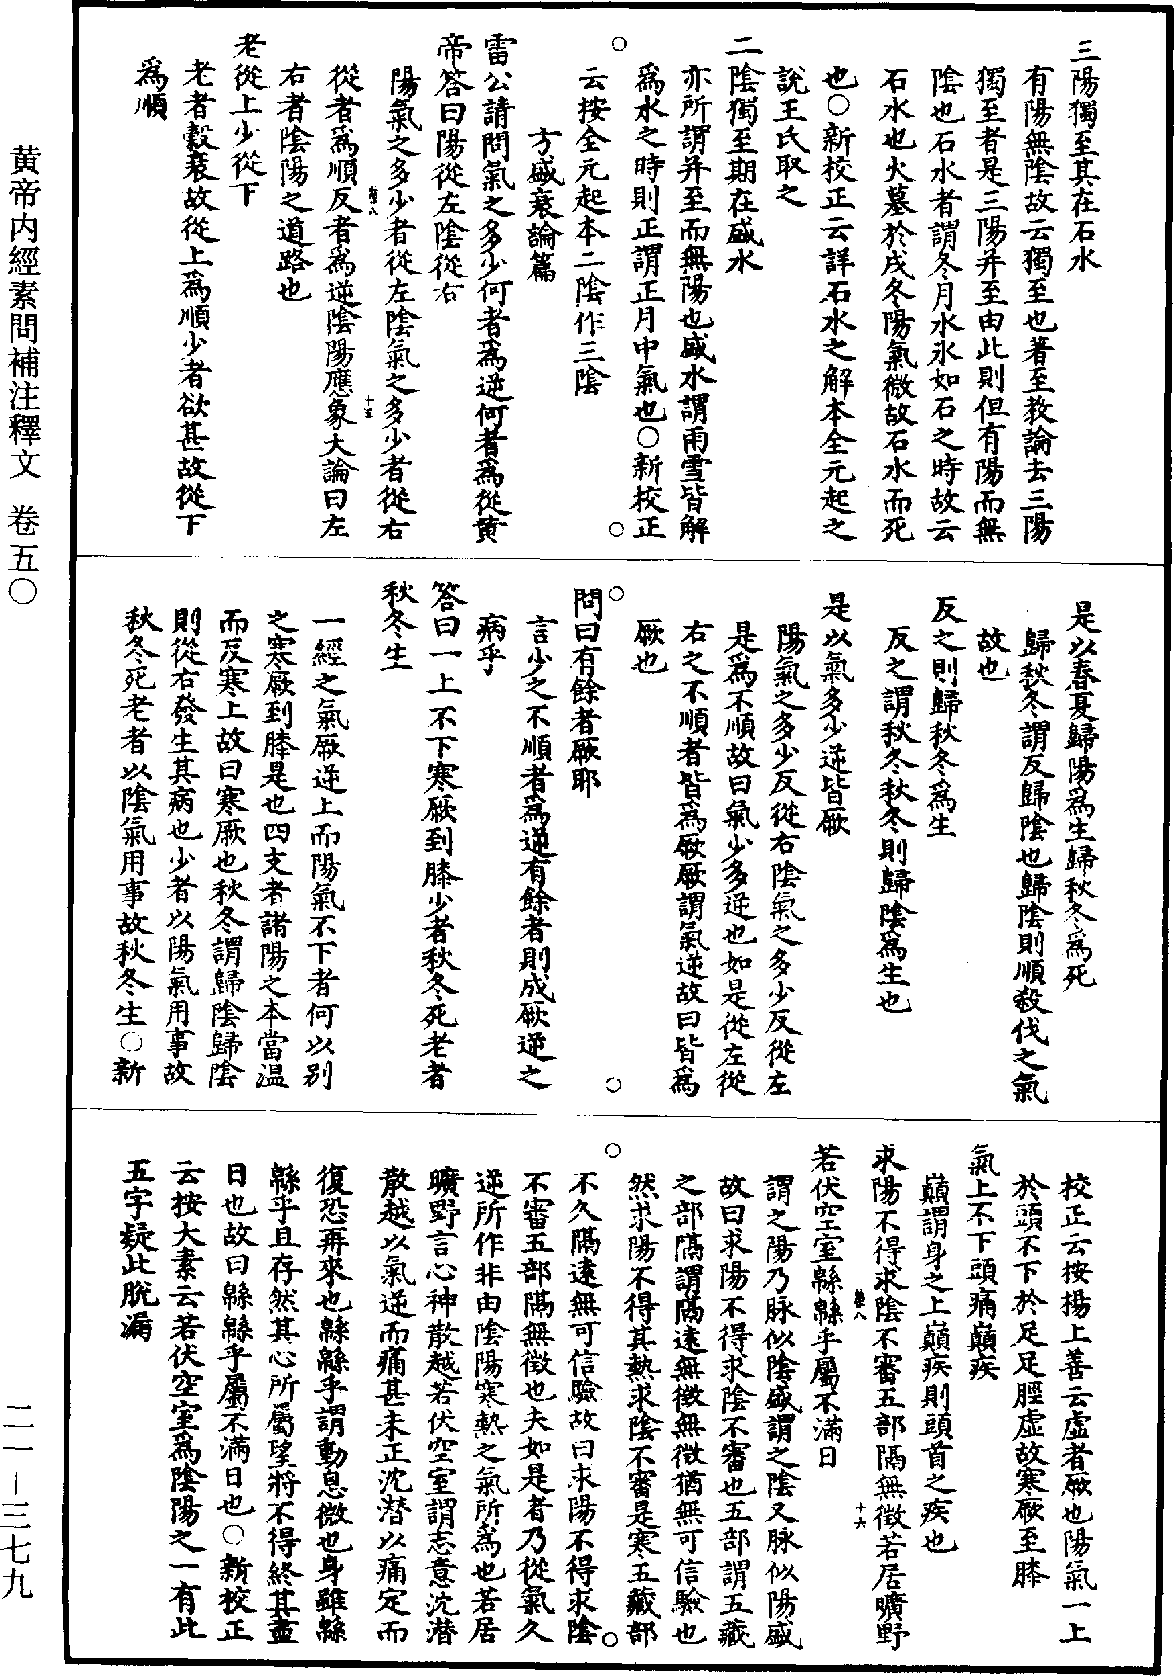 三陽獨至其在石水
有陽無陰故云獨至也著至教論去三陽
獨至者是三陽并至由此則但有陽而無
陰也石水者謂冬月水氷如石之時故云
石水也火墓於戌冬陽氣微故石水而死
也○新校正云詳石水之解本全元起之
說王氏取之
二陰獨至期在盛水
亦所謂并至而無陽也盛水謂雨雪皆解
爲水之時則正謂正月中氣也○新校正
云按全元起本二陰作三陰
方盛衰論篇
雷公請問氣之多少何者爲逆何者爲從黃
帝答曰陽從左陰從右
陽氣之多少者從左陰氣之多少者從右
從者爲順反者爲逆陰陽應象大論曰左
右者陰陽之道路也
老從上少從下
老者穀衰故從上爲順少者欲甚故從下
爲順
是以春夏歸陽爲生歸秋冬爲死
歸秋冬謂反歸陰也歸陰則順殺伐之氣
故也
反之則歸秋冬爲生
反之謂秋冬秋冬則歸陰爲生也
是以氣多少逆皆厥
陽氣之多少反從右陰氣之多少反從左
是爲不順故曰氣少多逆也如是從左從
右之不順者皆爲厥厥謂氣逆故曰皆爲
厥也
問曰有餘者厥耶
言少之不順者爲逆有餘者則成厥逆之
病乎
答曰一上不下寒厥到膝少者秋冬死老者
秋冬生
一經之氣厥逆上而陽氣不下者何以別
之寒厥到膝是也四支者諸陽之本當温
而反寒上故曰寒厥也秋冬謂歸陰歸陰
則從右發生其病也少者以陽氣用事故
秋冬死老者以陰氣用事故秋冬生○新
校正云按揚上善云虛者厥也陽氣一上
於頭不下於足足脛虛故寒厥至膝
氣上不下頭痛巔疾
巔謂身之上巔疾則頭首之疾也
求陽不得求陰不審五部隔無徵若居曠野
若伏空室緜緜乎屬不滿日
謂之陽乃脉似陰盛謂之陰又脉似陽盛
故曰求陽不得求陰不審也五部謂五藏
之部隔謂隔遠無徵無徵猶無可信驗也
然求陽不得其熱求陰不審是寒五藏部
不久隔遠無可信驗故曰求陽不得求陰
不審五部隔無徵也夫如是者乃從氣久
逆所作非由陰陽寒熱之氣所爲也若居
曠野言心神散越若伏空室謂志意沈潛
散越以氣逆而痛甚未正沈潜以痛定而
復恐再來也緜緜乎謂動息微也身雖緜
緜乎且存然其心所屬望將不得終其盡
日也故曰緜緜乎屬不滿日也○新校正
云按大素云若伏空室爲陰陽之一有此
五字疑此脫漏
黃帝内經素問補注釋文 卷五○
二一－三七九
十五
十六